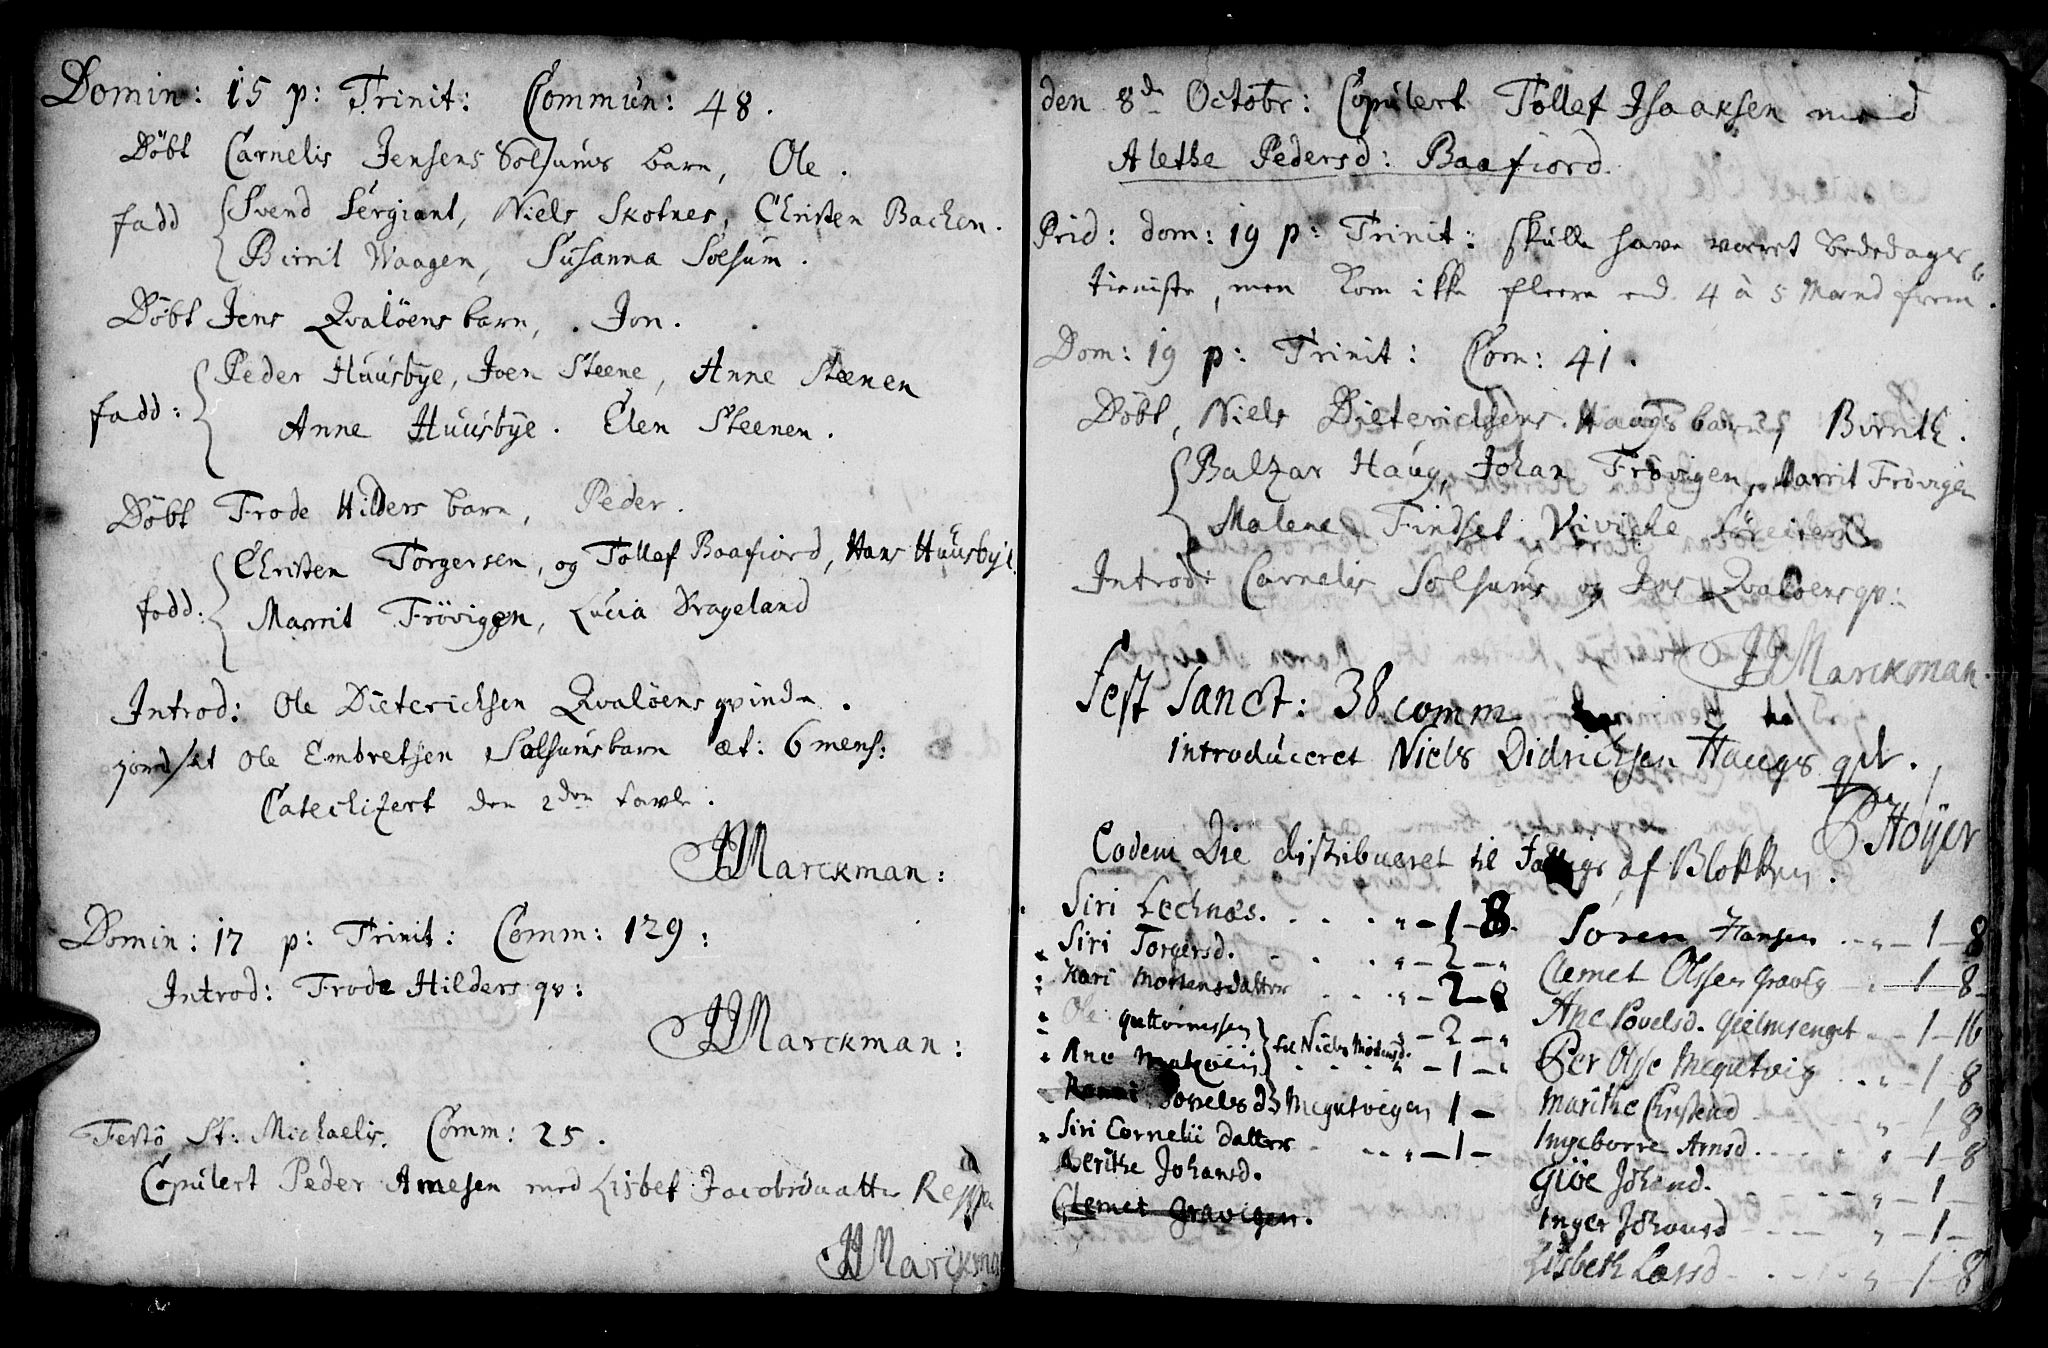 Domin: 15 p: Trinit: Commun: 48.
Döbt Carnelis Jensens Solsums barn, Ole.
fadd Svend Sergiant, Niels Skotnes, Christen Bachen.
Birrit Waagen, Susanna Solsum.
Döbt Jens Qvalöens barn, Jon.
fadd: Peder Huusbÿe, Joen Steene, Anne Steenen
Anne Huusbÿe. Elen Steenen.
Döbt Frode Hilders barn, Peder.
fadd: Christen Torgersen, og Tollef Baafiord, Hans Huusbÿe.
Marrit Frövigen, Lucia Krageland
Introd: Ole Dieterichsen Qvalöens qvinde.
jordsat Ole Embretsen Solsums barn æt: 6 mens:
Catechizert den 2den tavle.
HMarckman:
Domin: 17 p: Trinit: Comm: 129:
Introd: Frode Hilders qv:
HMarckman:
Festo St: Michaelis. Comm: 25.
Copulert Peder Arnesen med Lisbet Jacobsdaatter Reppen
HMarckman
den 8de Octobr: Copulert Tollef Isaaksen med
Alethe Pedersd: Baafiord.
Prid: dom: 19 p: Trinit: skulle have værret Bededags
tieniste, men kom ikke fleere end 4 à 5 Mænd frem.
Dom: 19 p: Trinit: Com: 41.
Döbt, Niels Dieterichsens Haugs barn, Birrith.
Balzar Haug, Johan Frövigen, Marrit Frövigen
Malene Findset, Viviche
Introd: Carnelis Solsums og Jens Qvalöens qv:
HMarckman.
Fest Sanct: 38 comm
introduceret Niels Didrichsen Haugs qv.
P Höÿer
Eodem Die distribueret til Fattige af Blokken.
Siri Lechnæs. " - 1 - 8.
Siri Torgersd. " - 2 - "
Kari Mortensdatter " - 2 - 8
Ole Guttormssen " - 2 - "
Ane til Niels Mortensd. " - 1 - "
Povelsd Megutvigen 1 -
Siri Cornelii datter " - 1 -
Berithe Johansd.
Clemet Gravigen.
Søren Hansen " - 1 - 8
Clemet Olssen Gravig " 1 - 8
Ane Povelsd. Gielmsenget - 1 - 16
Per Olsse Megutvig " - 1 - 8
Marithe Christend " - 1 8
Ingeborre Arnsd. " - 1 - 8
Giöe Johansd. " - 1 -
Inger Johansd " - 1 -
Lisbeth Larsd " - 1 - 8